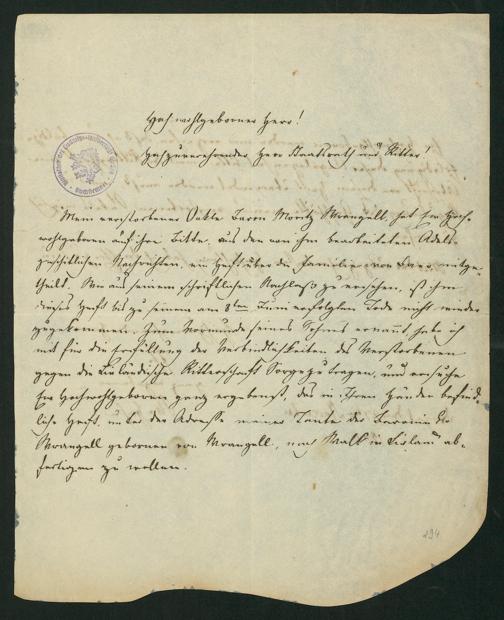 Hochwohlgeborner Herr!
Hochzuverehrender Herr Staatsrath und Ritter!
Mein verstorbener Onkel Baron Moritz Wrangell, hat Ew Hoch-
wohlgeboren auf ihre Bitte, aus den von ihm bearbeiteten Adels-
geschichtlichen Nachrichten, ein Heft über die Familie von Baer mitge-
theilt. Wie aus seinem schriftlichen Nachlaß zu ersehen, ist ihm
dieses Heft bis zu seinem am 8ten Juni erfolgten Tode nicht wieder
zugekommen. Zum Vormunde seines Sohnes ernannt habe ich
mit für die Erfüllung der Verbindlichkeiten des Verstorbenen
gegen die Livländische Ritterschaft Sorge zu tragen, und ersuche
Ew Hochwohlgeboren ganz ergebenst, das in Ihren Händen befind-
liche Heft, unter der Adresse meiner Tante der Baronin
Wrangell gebornen von Wrangell, nach Walk in Livland ab-
fertigen zu wollen.
294